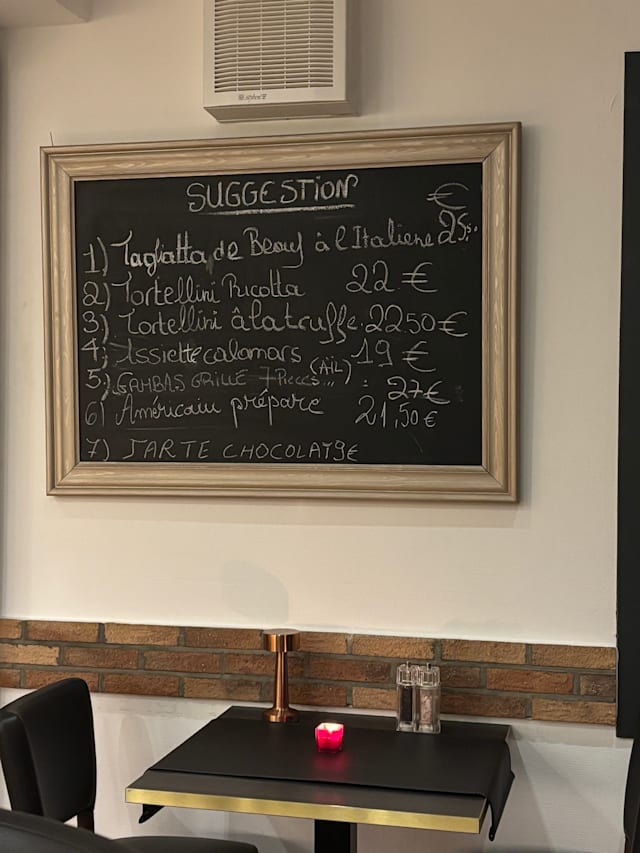 SUGGESTION €
1) Tagliatta de Beouf à l'Italiene 25,50
2) Tortellini Ricotta 22 €
3) Tortellini à la truffe. 22.50 €
4) Assiette calamars 19 €
5) GAMBAS GRILLÉ 7 Pieces... (AïL) : 27 €
6) Américain prépare 21,50 €
7) TARTE CHOCOLAT 9€